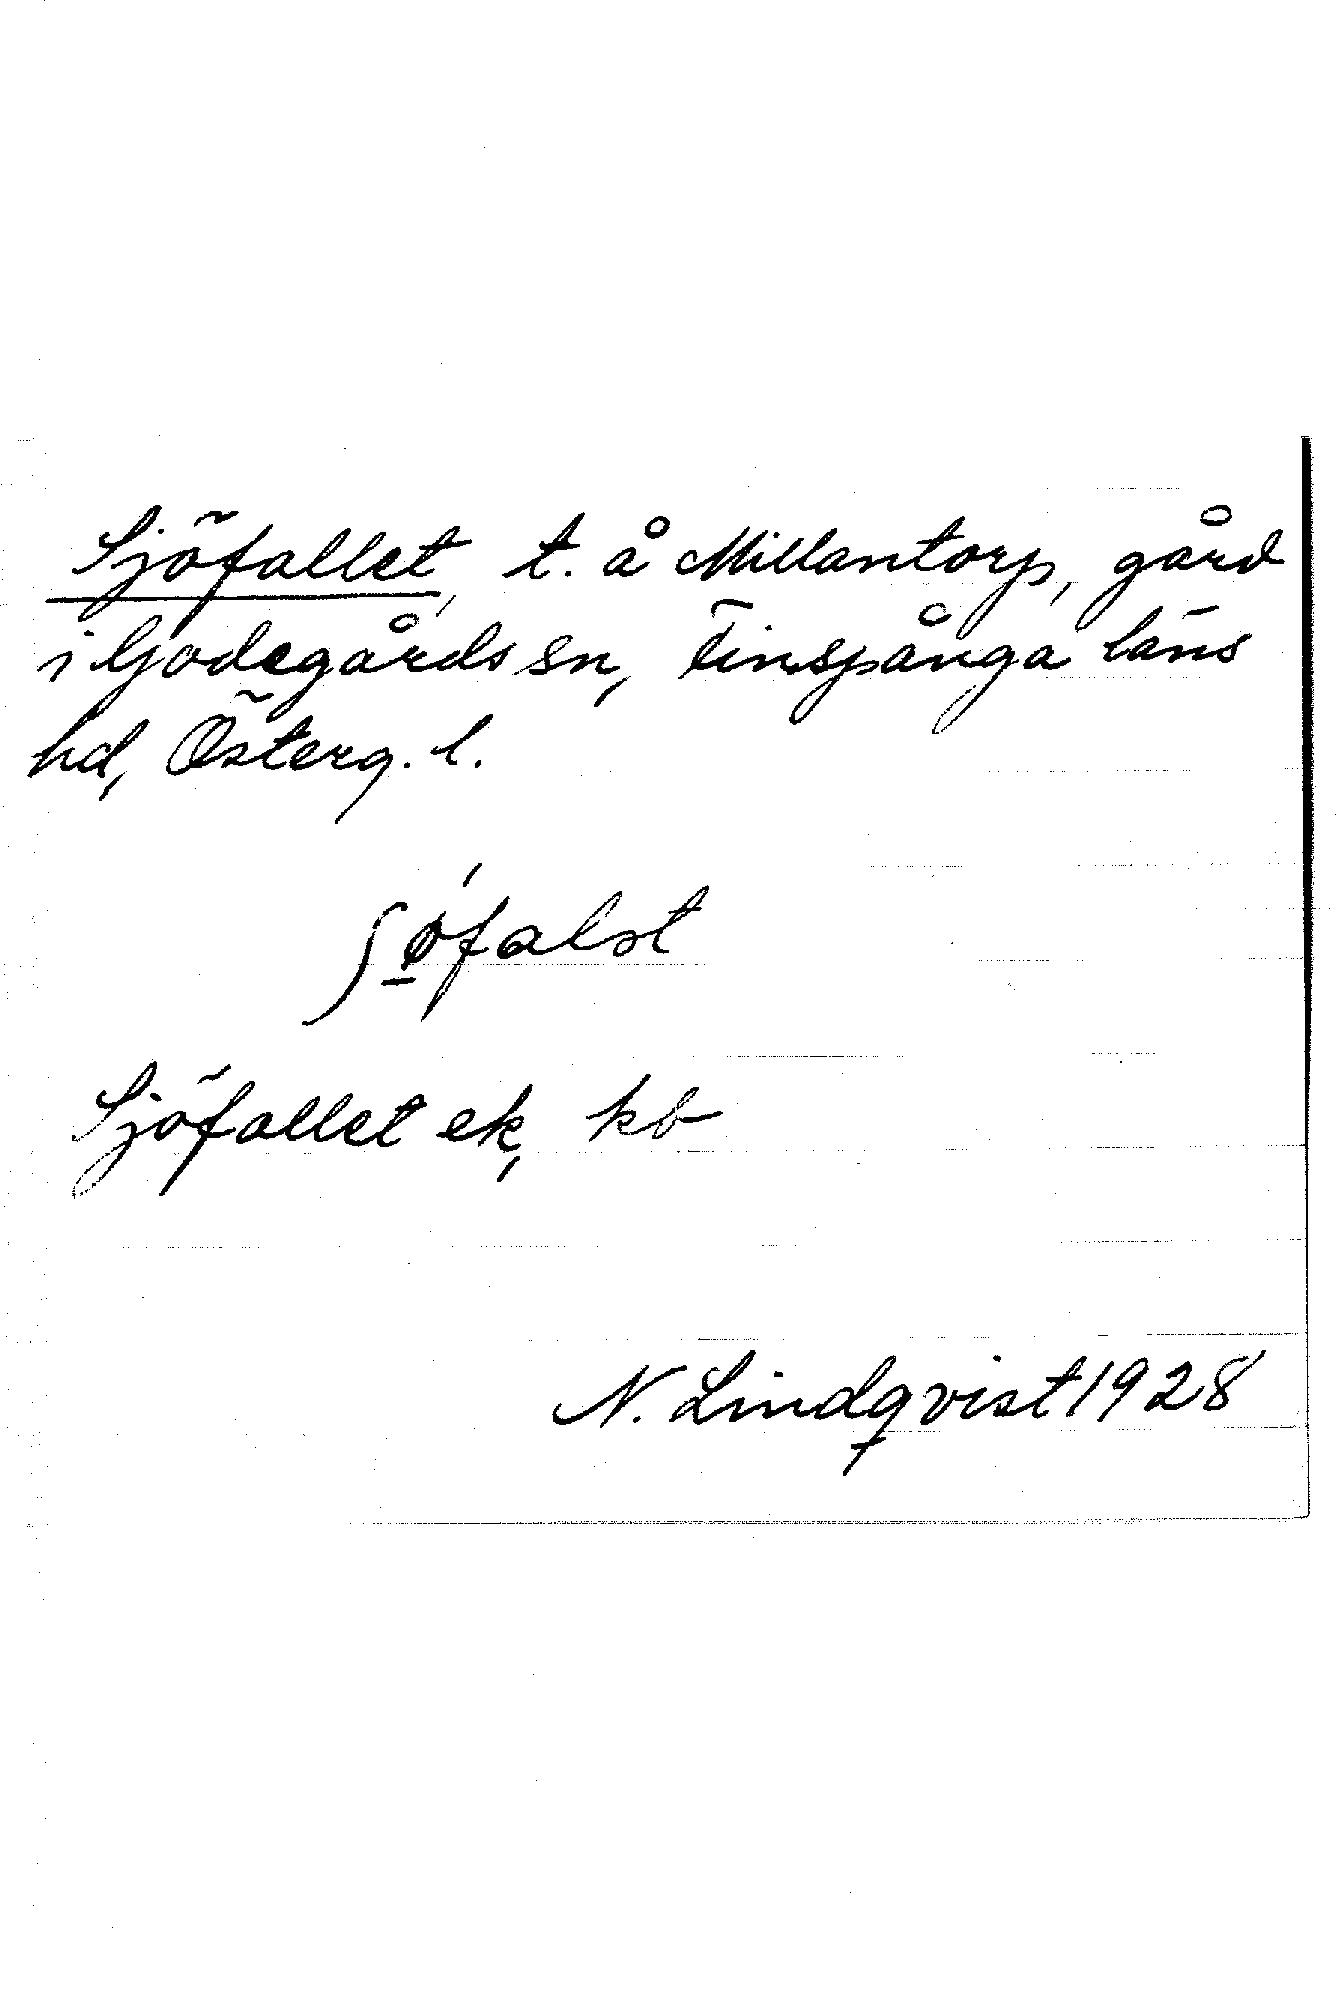 Sjöfallet, t. å Millantorp, gård
i Godegårds sn, Finspånga läns
hd, Österg. l.
ʃǿ̠falət
Sjöfallet ek, kb
N. Lindqvist 1928